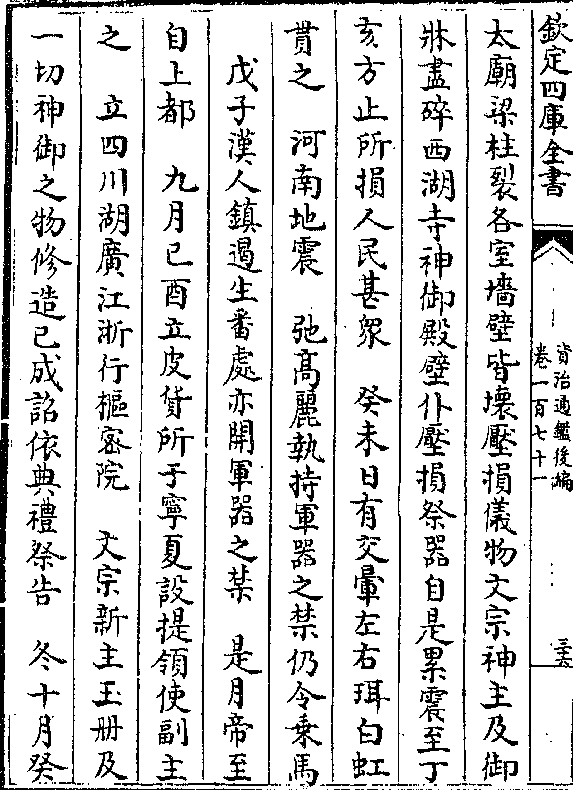 欽定四庫全書
資治通鑑後編
卷一百七十一
三十六
太廟梁柱裂各室墻壁皆壞壓損儀物文宗神主及御
牀盡碎西湖寺神御殿壁仆壓損祭器自是累震至丁
亥方止所損人民甚衆　癸未日有交暈左右珥白虹
貫之　河南地震　弛高麗執持軍器之禁仍令乗馬
戊子漢人鎮遏生番處亦開軍器之禁　是月帝至
自上都　九月已酉立皮貨所于寧夏設提領使副主
之　立四川湖廣江浙行樞宻院　文宗新主玉册及
一切神御之物修造已成詔依典禮祭告　冬十月癸